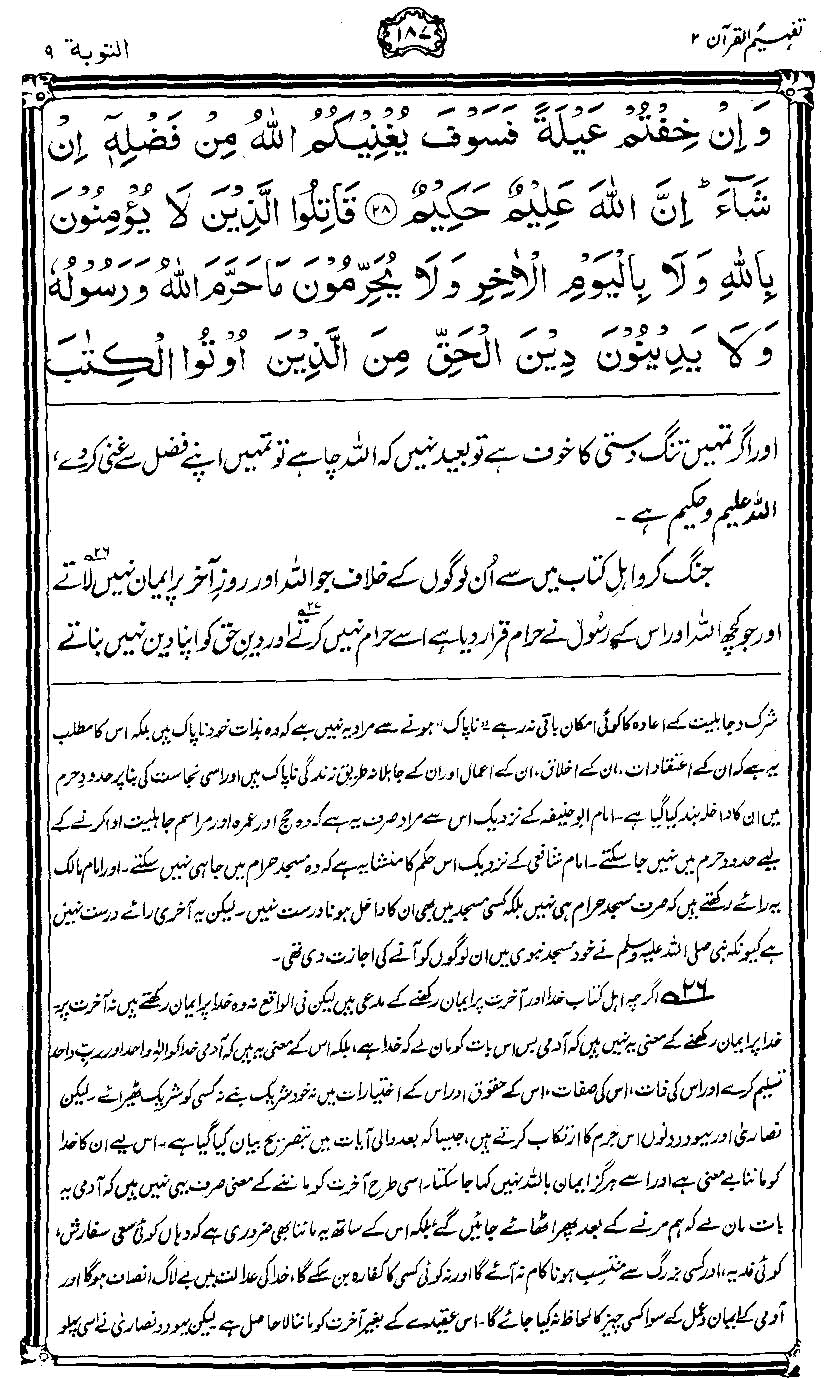 تفہیم القرآن ۲
۱۸۷
التوبة ۹
وَاِنْ خِفْتُمْ عَيْلَةً فَسَوْفَ يُغْنِيْكُمُ اللّٰهُ مِنْ فَضْلِهٖٓ اِنْ
شَآءَ ؕ اِنَّ اللّٰهَ عَلِيْمٌ حَكِيْمٌ ﴿۲۸﴾ قَاتِلُوا الَّذِيْنَ لَا يُؤْمِنُوْنَ
بِاللّٰهِ وَلَا بِالْيَوْمِ الْاٰخِرِ وَلَا يُحَرِّمُوْنَ مَا حَرَّمَ اللّٰهُ وَرَسُوْلُهٗ
وَلَا يَدِيْنُوْنَ دِيْنَ الْحَقِّ مِنَ الَّذِيْنَ اُوْتُوا الْكِتٰبَ
اور اگر تمہیں تنگ دستی کا خوف ہے تو بعید نہیں کہ اللہ چاہے تو تمہیں اپنے فضل سے غنی کر دے،
اللہ علیم و حکیم ہے۔
جنگ کرو اہلِ کتاب میں سے اُن لوگوں کے خلاف جو اللہ اور روزِ آخر پر ایمان نہیں لاتے ۲۶
اور جو کچھ اللہ اور اس کے رسُولؐ نے حرام قرار دیا ہے اسے حرام نہیں کرتے ۲۷ اور دینِ حق کو اپنا دین نہیں بناتے
شرک و جاہلیت کے اعادہ کا کوئی امکان باقی نہ رہے۔ "ناپاک" ہونے سے مراد یہ نہیں ہے کہ وہ بذات خود ناپاک ہیں بلکہ اس کا مطلب
یہ ہے کہ ان کے اعتقادات، ان کے اخلاق، ان کے اعمال اور ان کے جاہلانہ طریق زندگی ناپاک ہیں اور اسی نجاست کی بنا پر حدودِ حرم
میں ان کا داخلہ بند کیا گیا ہے۔ امام ابو حنیفہ کے نزدیک اس سے مراد صرف یہ ہے کہ وہ حج اور عمرہ اور مراسم جاہلیت ادا کرنے کے
لیے حدود حرم میں نہیں جا سکتے۔ امام شافعی کے نزدیک اس حکم کا منشا یہ ہے کہ وہ مسجد حرام میں جا ہی نہیں سکتے۔ اور امام مالک
یہ رائے رکھتے ہیں کہ صرف مسجد حرام ہی نہیں بلکہ کسی مسجد میں بھی ان کا داخل ہونا درست نہیں۔ لیکن یہ آخری رائے درست نہیں
ہے کیونکہ نبی صلی اللہ علیہ وسلم نے خود مسجد نبوی میں ان لوگوں کو آنے کی اجازت دی تھی۔
۲۶ اگرچہ اہل کتاب خدا اور آخرت پر ایمان رکھنے کے مدعی ہیں لیکن فی الواقع نہ وہ خدا پر ایمان رکھتے ہیں نہ آخرت پر۔
خدا پر ایمان رکھنے کے معنی یہ نہیں ہیں کہ آدمی بس اس بات کو مان لے کہ خدا ہے، بلکہ اس کے معنی یہ ہیں کہ آدمی خدا کو الٰہِ واحد اور ربِّ واحد
تسلیم کرے اور اس کی ذات، اس کی صفات، اس کے حقوق اور اس کے اختیارات میں نہ خود شریک بنے نہ کسی کو شریک ٹھیرائے۔ لیکن
نصاریٰ اور یہود دونوں اس جرم کا ارتکاب کرتے ہیں، جیسا کہ بعد والی آیات میں بتصریح بیان کیا گیا ہے۔ اس لیے ان کا خدا
کو ماننا بے معنی ہے اور اسے ہرگز ایمان باللہ نہیں کہا جا سکتا۔ اسی طرح آخرت کو ماننے کے معنی صرف یہی نہیں ہیں کہ آدمی یہ
بات مان لے کہ ہم مرنے کے بعد پھر اٹھائے جائیں گے، بلکہ اس کے ساتھ یہ ماننا بھی ضروری ہے کہ وہاں کوئی سعی سفارش،
کوئی فدیہ، اور کسی بزرگ سے منتسب ہونا کام نہ آئے گا اور نہ کوئی کسی کا کفارہ بن سکے گا، خدا کی عدالت میں بے لاگ انصاف ہوگا اور
آدمی کے ایمان و عمل کے سوا کسی چیز کا لحاظ نہ کیا جائے گا۔ اس عقیدے کے بغیر آخرت کو ماننا لاحاصل ہے لیکن یہود و نصاریٰ نے اسی پہلو